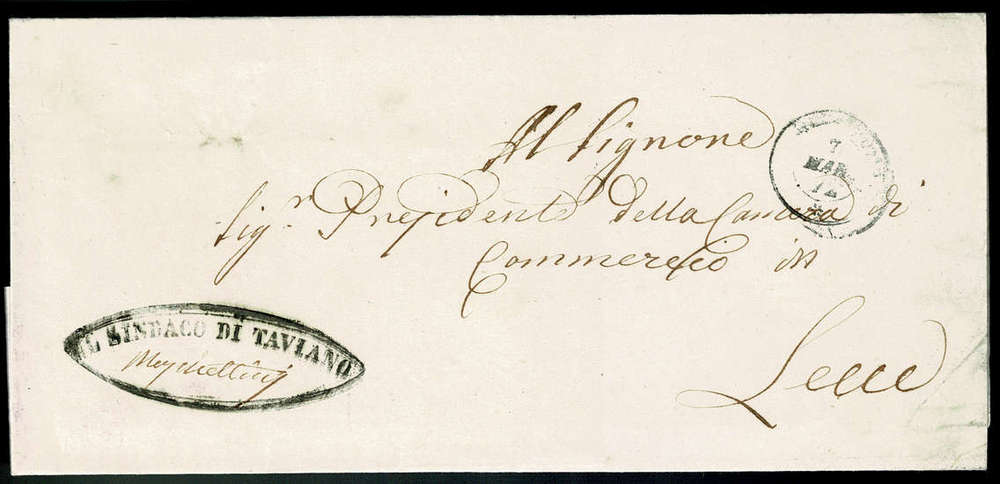 Al Signore
Sig.r Presidente della Camera di
Commercio in
Lecce
7
MAR
IL SINDACO DI TAVIANO